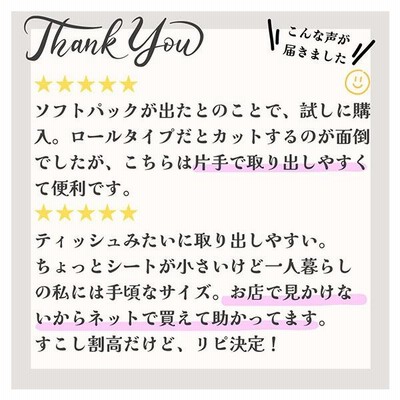 Thank You
こんな声が
届きました
★★★★★
ソフトパックが出たとのことで、試しに購
入。ロールタイプだとカットするのが面倒
でしたが、こちらは片手で取り出しやすく
て便利です。
★★★★★
ティッシュみたいに取り出しやすい。
ちょっとシートが小さいけど一人暮らし
の私には手頃なサイズ。お店で見かけな
いからネットで買えて助かってます。
すこし割高だけど、リピ決定！